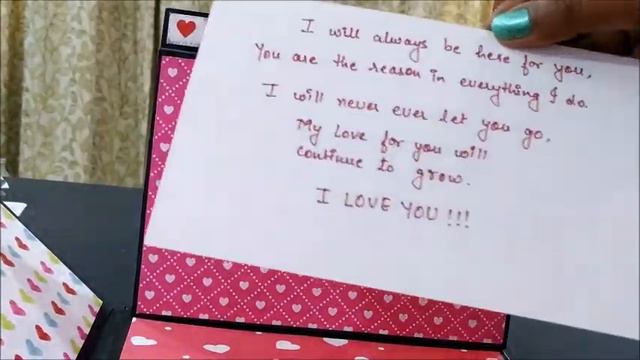 I will always be here for you,
You are the reason in everything I do.
I will never ever let you go,
My love for you will
continue to grow.
I LOVE YOU !!!